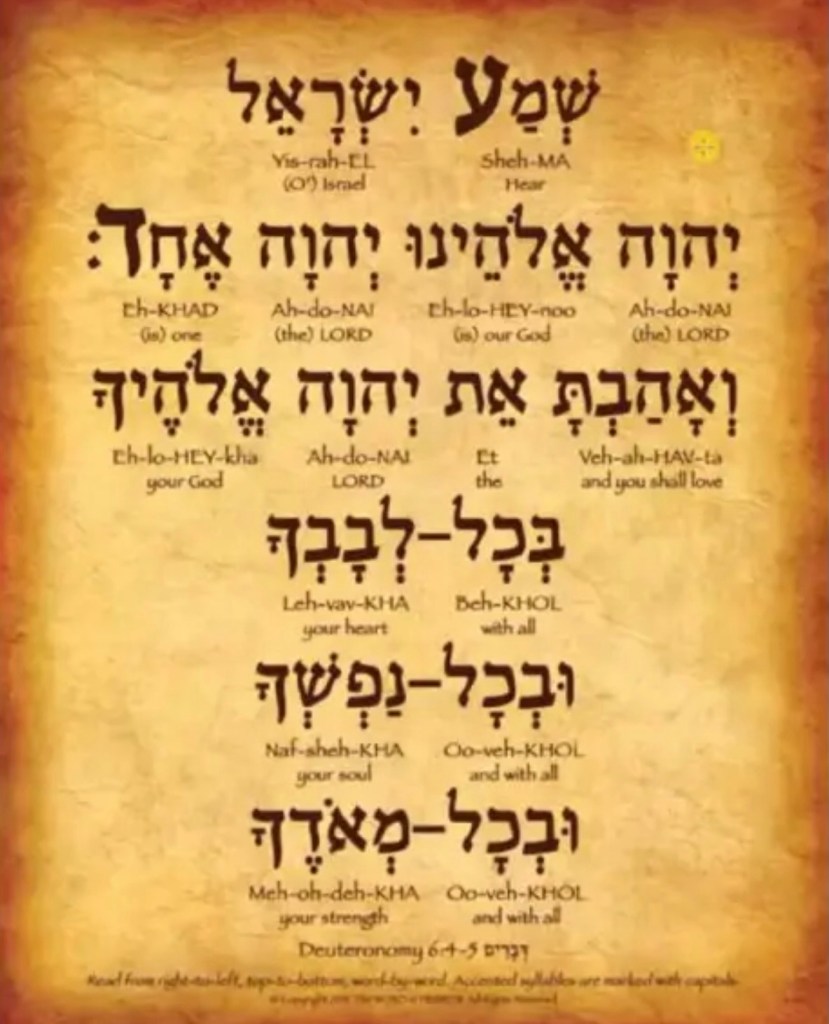 שְׁמַע יִשְׂרָאֵל
Yis-rah-EL Sheh-MA
(O') Israel Hear
יְהוָה אֱלֹהֵינוּ יְהוָה אֶחָד׃
Eh-KHAD Ah-do-NAI Eh-lo-HEY-noo Ah-do-NAI
(is) one (the) LORD (is) our God (the) LORD
וְאָהַבְתָּ אֵת יְהוָה אֱלֹהֶיךָ
Eh-lo-HEY-kha Ah-do-NAI Et Veh-ah-HAV-ta
your God LORD the and you shall love
בְּכָל–לְבָבְךָ
Leh-vav-KHA Beh-KHOL
your heart with all
וּבְכָל–נַפְשְׁךָ
Naf-sheh-KHA Oo-veh-KHOL
your soul and with all
וּבְכָל–מְאֹדֶךָ
Meh-oh-deh-KHA Oo-veh-KHOL
your strength and with all
Deuteronomy 6:4-5 דְּבָרִים
Read from right-to-left, top-to-bottom, word-by-word. Accented syllables are marked with capitals.
© Copyright The WORD in HEBREW. All Rights Reserved